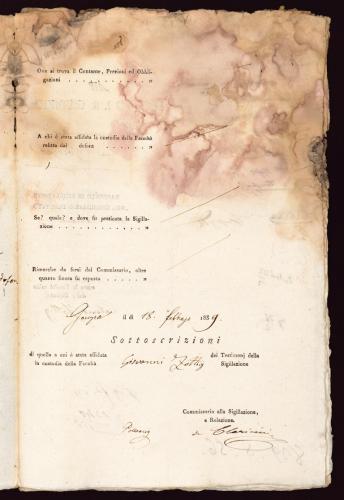 Ove si trova il Contante, Preziosi ed Obbli-
gazioni . . . . . . . . . . . . „
A chi è stata affidata la custodia della Facoltà
relitta dal defunto . . . . . . . „
Se? quale? e dove fu praticata la Sigilla-
zione . . . . . . . . . . . . „
Rimarche da farsi dal Commissario, oltre
quanto finora fu esposto . . . . . „
Gorizia li 18 febrajo 1839.
Sottoscrizioni
di quello a cui è stata affidata
la custodia della Facoltà
Giovanni
dei Testimonj della
Sigillazione
Commissario alla Sigillazione,
e Relazione.
de Claricini